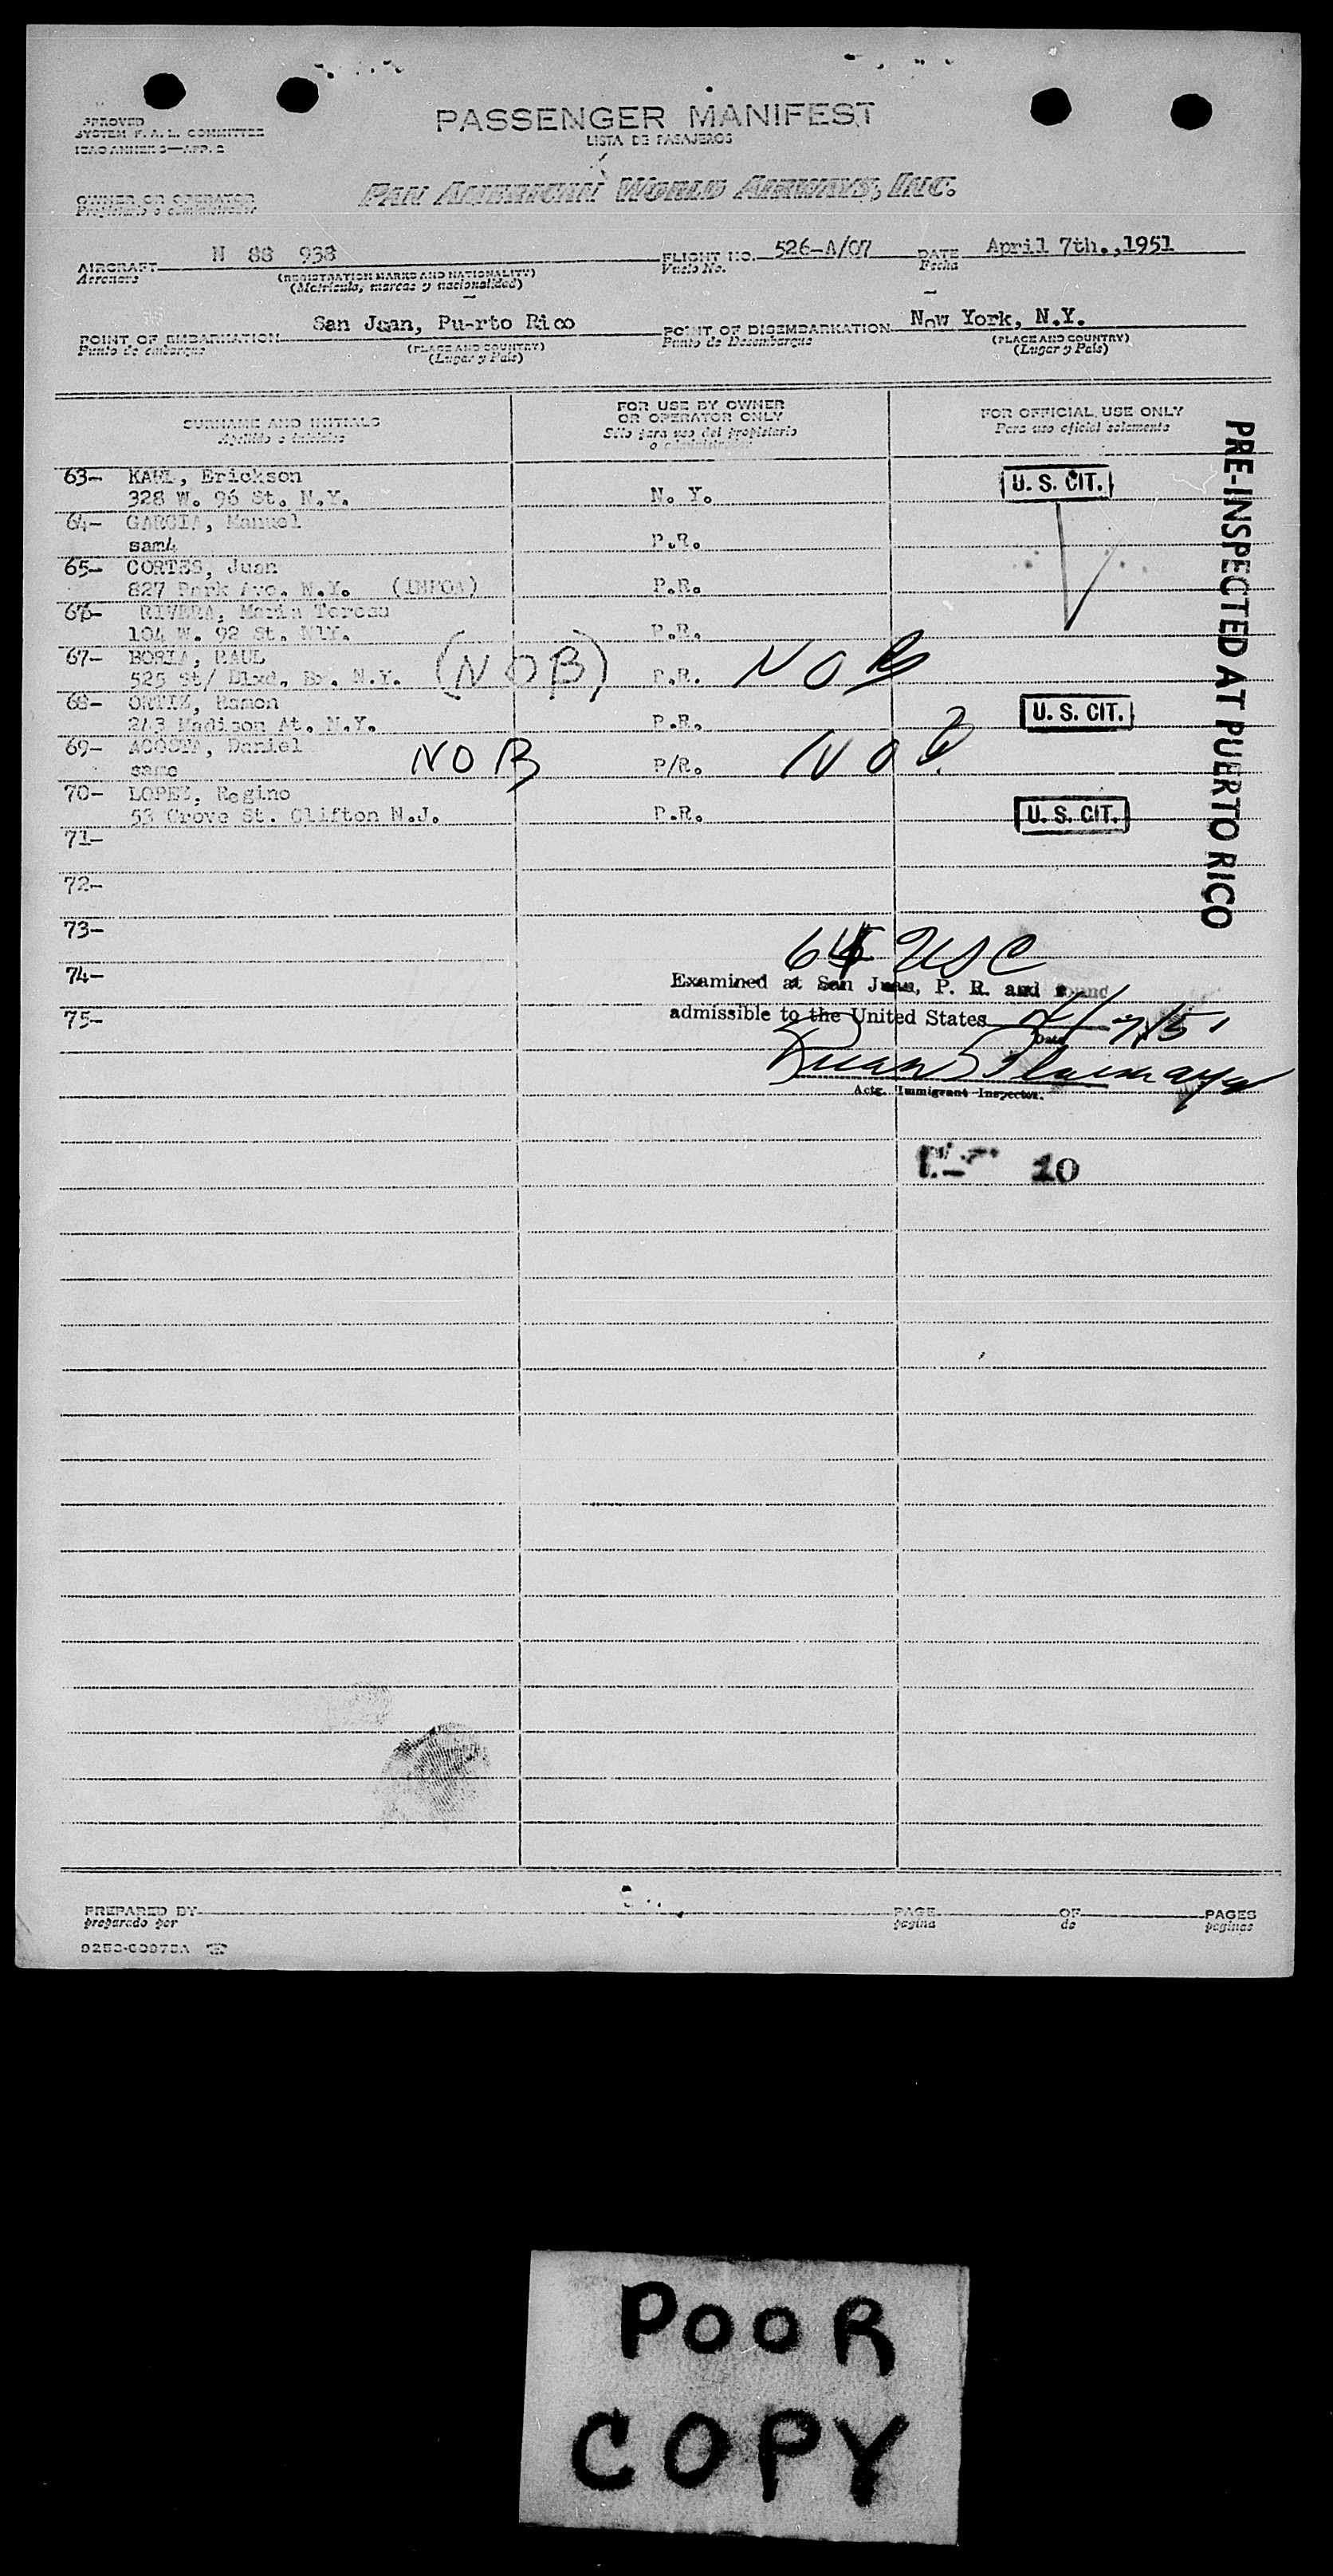 APPROVED
SYSTEM F. A. L. COMMITTEE
ICAO ANNEX 9—APP. 2
PASSENGER MANIFEST
LISTA DE PASAJEROS
OWNER OR OPERATOR
Propietario o administrador
PAN AMERICAN WORLD AIRWAYS, INC.
AIRCRAFT N 88 938 FLIGHT NO. 526-A/07 DATE April 7th.,1951
Aeronave (REGISTRATION MARKS AND NATIONALITY) Vuelo No. Fecha
(Matrícula, marcas y nacionalidad)
POINT OF EMBARKATION San Juan, Pu-rto Rico POINT OF DISEMBARKATION New York, N.Y.
Punto de embarque (PLACE AND COUNTRY) Punto de Desembarque (PLACE AND COUNTRY)
(Lugar y País) (Lugar y País)
SURNAME AND INITIALS FOR USE BY OWNER OR OPERATOR ONLY FOR OFFICIAL USE ONLY
Apellido e iniciales Sólo para uso del propietario o administrador Para uso oficial solamente
PRE-INSPECTED AT PUERTO RICO
63- KAUL, Erickson U. S. CIT.
328 W. 96 St. N.Y. N. Y.
64- GARCIA, Manuel
same P.R.
65- CORTES, Juan
827 Park Ave. N.Y. P.R.
66- RIVERA, Maria Teresa
104 W. 92 St. N1Y. P.R.
67- BORIA, RAUL
525 St/ Blvd. Br. N.Y. (NOB) P.R. NOB
68- ORTIZ, Ramon U. S. CIT.
243 Madison At. N.Y. P.R.
69- ACOSTA, Daniel
same NOB P/R. NOB
70- LOPEZ, Regino
53 Grove St. Clifton N.J. P.R. U. S. CIT.
71-
72-
73-
USC
74-
Examined at San Juan, P. R. and found
75-
admissible to the United States 4/7/51
Date
Actg. Immigrant Inspector.
10
PREPARED BY PAGE OF PAGES
preparado por página de páginas
POOR
COPY